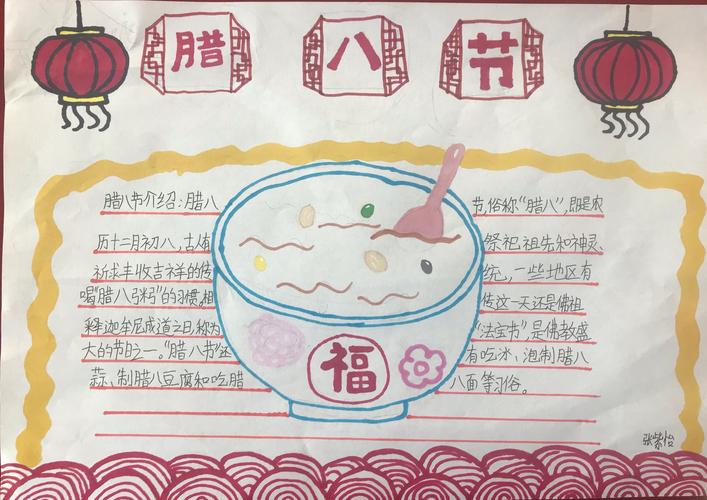 腊八节
腊八节介绍:腊八节,俗称"腊八",即是农
历十二月初八,古人有祭祀祖先和神灵、
祈求丰收吉祥的传统,一些地区有
喝"腊八粥"的习惯。相传这一天还是佛祖
释迦牟尼成道之日,称为"法宝节",是佛教盛
大的节日之一。"腊八节"还有吃冰、泡制腊八
蒜、制腊八豆腐和吃腊八面等习俗。
福
张紫怡